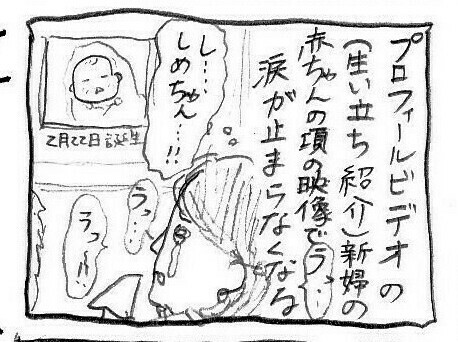 プロフィールビデオの
（生い立ち紹介）新婦の
赤ちゃんの項の映像で
涙が止まらなくなな
う…
し…
しめちゃん…!!
2月22日誕生
うっ…
うっ!!